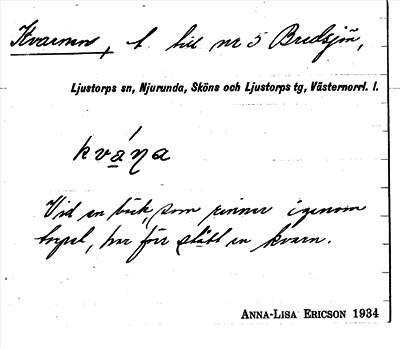 Kvarnen, t. till nr 5 Bredsjön,
Ljustorps sn, Njurunda, Sköns och Ljustorps tg, Västernorrl. l.
kvá̱ṇa
Vid en bäck, som rinner igenom
torpet, har förr stått en kvarn.
ANNA-LISA ERICSON 1934